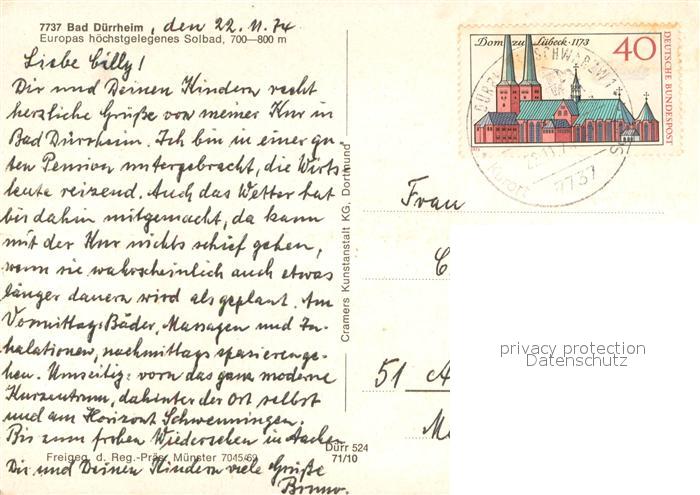 7737 Bad Dürrheim, den 22.11.74
Europas höchstgelegenes Solbad, 700—800 m
Liebe Cilly!
Dir und Deinen Kindern recht
herzliche Grüße von meiner Kur in
Bad Dürrheim. Ich bin in einer gu-
ten Pension untergebracht, die Wirts-
leute reizend. Auch das Wetter hat
bis dahin mitgemacht, da kann
mit der Kur nichts schief gehen,
wenn sie wahrscheinlich auch etwas
länger dauern wird als geplant. Am
Vormittags Bäder, Massagen und In-
halationen, nachmittags spazierenge-
hen. Umseitig: vorn das ganz moderne
Kurzentrum, dahinter der Ort selbst
und am Horizont Schwenningen.
Bis zum frohen Wiedersehen in Aachen
Dir und Deinen Kindern viele Grüße
Bruno.
Freigeg. d. Reg.-Präs. Münster 7045/69
Dürr 524
71/10
Cramers Kunstanstalt KG, Dortmund
Dom zu Lübeck · 1173
40
DEUTSCHE BUNDESPOST
7737
Frau
C
51 A
privacy protection
Datenschutz